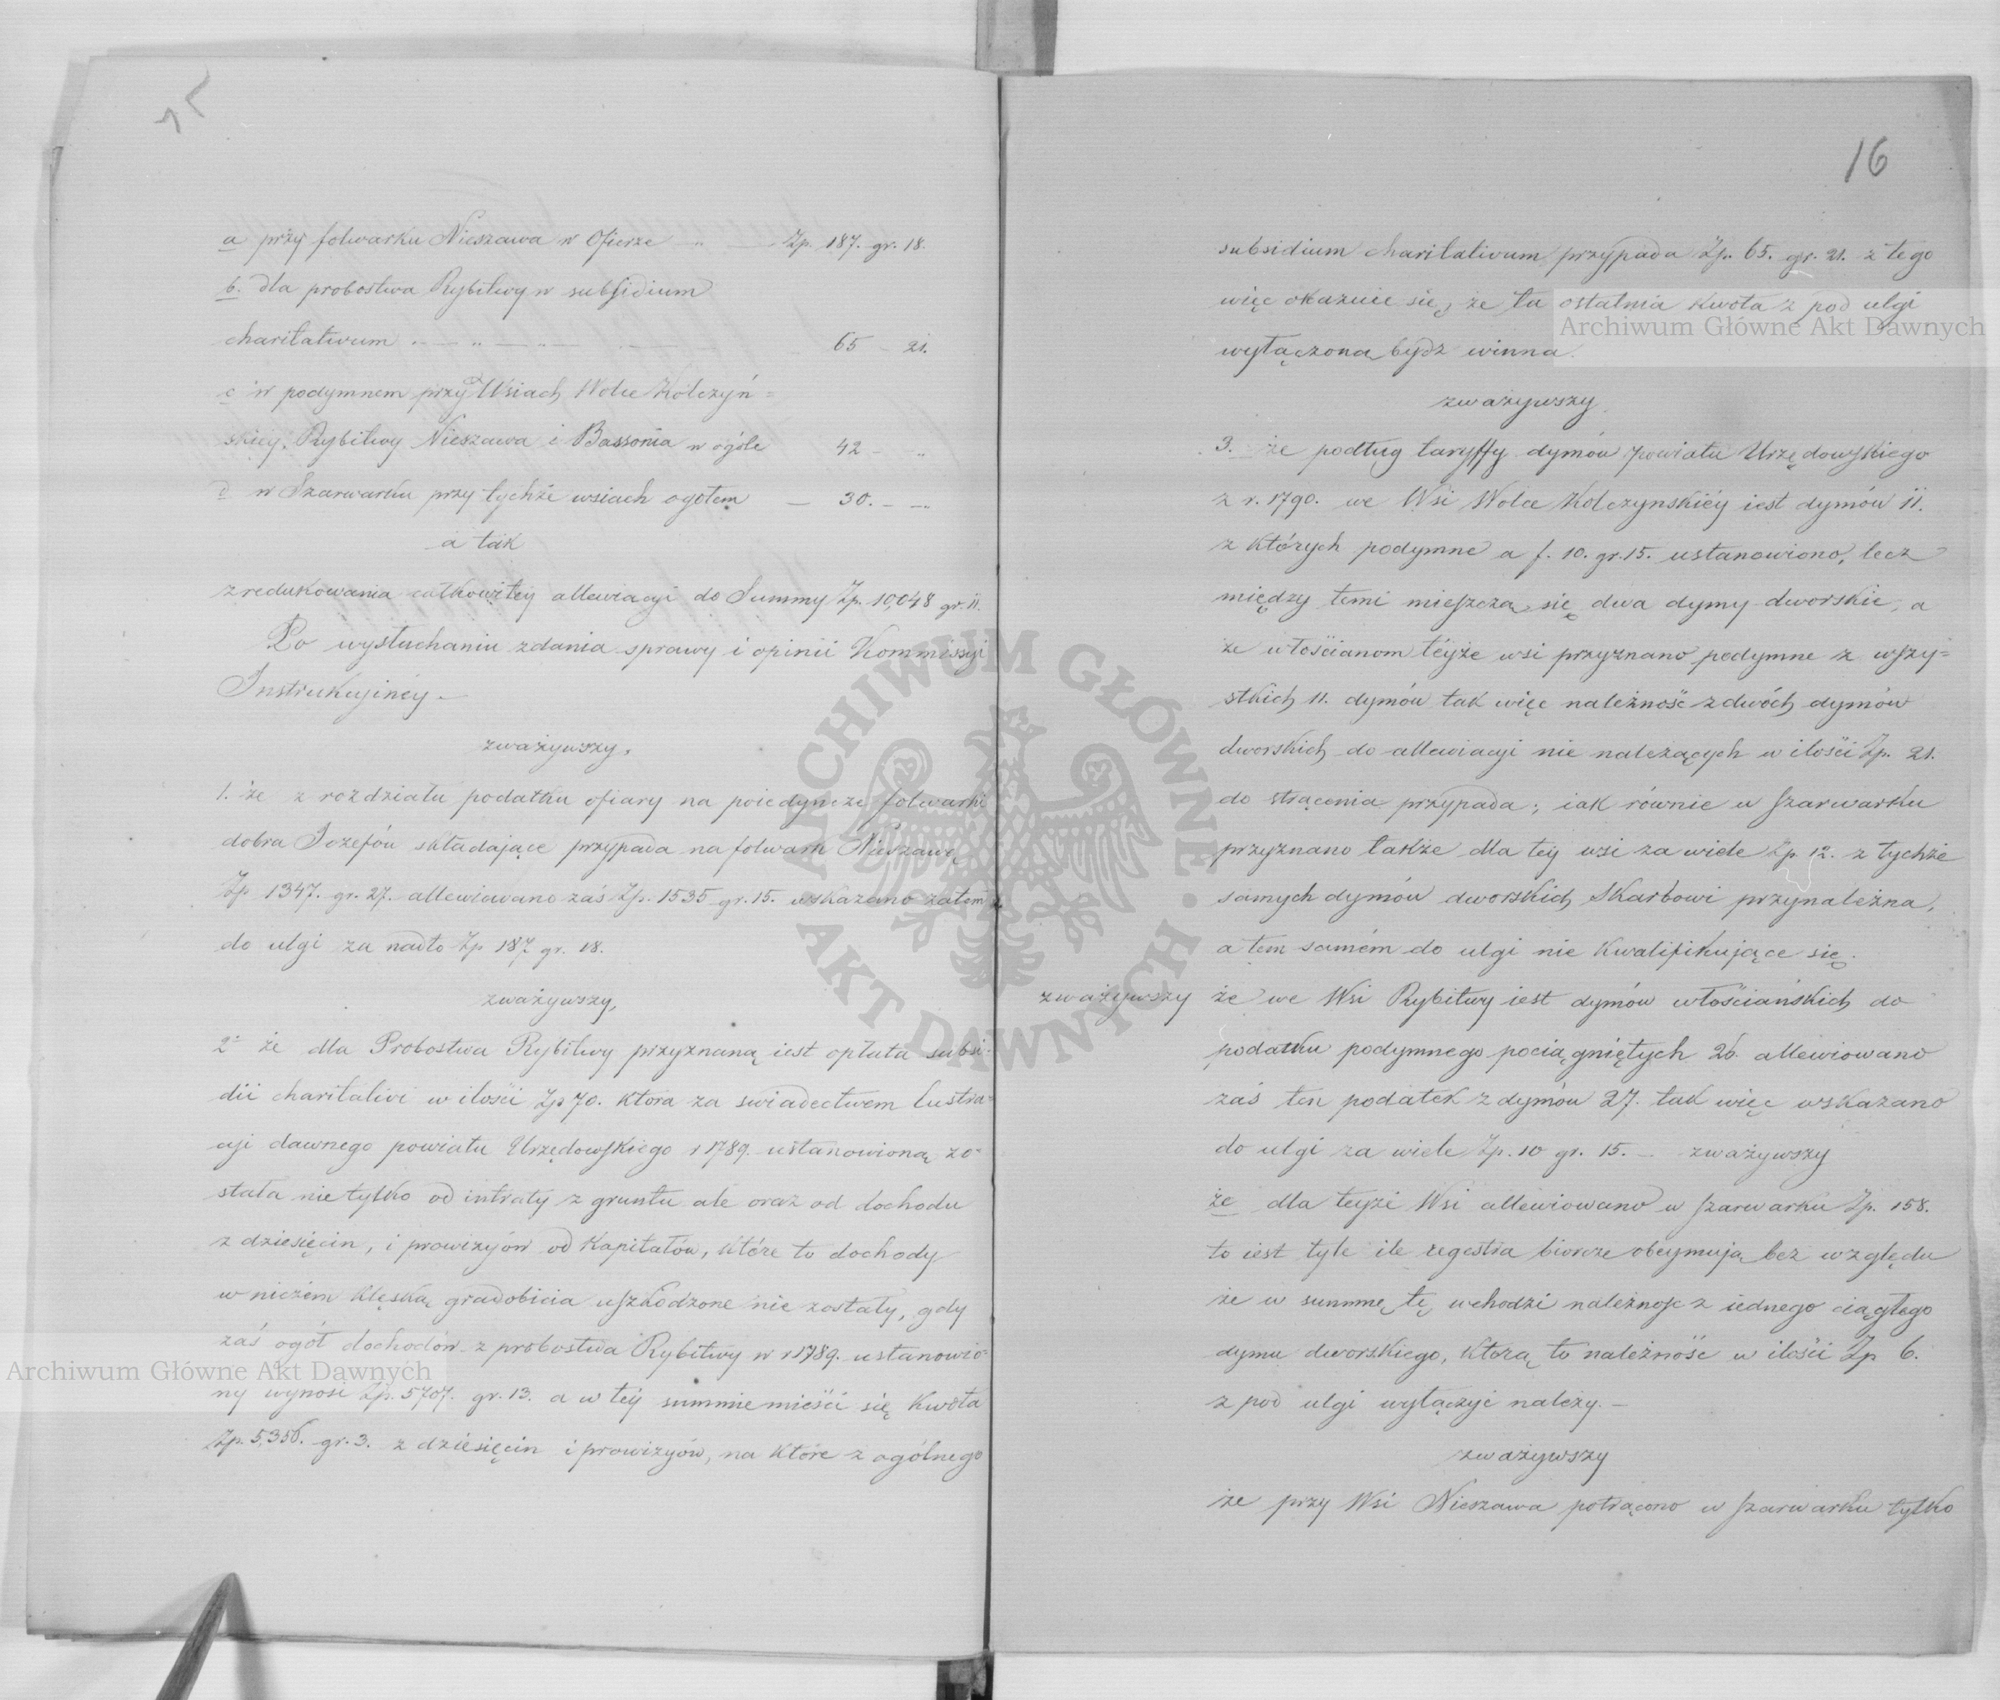 15
a przy folwarku Nieszawa w Ofierze - " - Zp. 187. gr. 18.
b. dla probostwa Rybitwy w subsidium
charitativum - " - " - 65 - 21.
c w podymnem przy Wsiach Wolce Kolczyń=
skiéy, Rybitwy Nieszawa i Bassonia w ogóle 42 - "
d w Szarwarku przy tychże wsiach ogołem - 30. - "
a tak
zredukowania całkowitéy allewiacyi do Summy Zp. 10,048 gr. 11.
Po wysłuchaniu zdania sprawy i opinii Kommissyi
Instrukcyinéy. -
zważywszy,
1. że z rozdziału podatku ofiary na poiedyncze folwarki
dobra Jozefów składające przypada na folwark Nieszawą
Zp 1347. gr. 27. allewiowano zaś Zp. 1535 gr. 15. wskazano zatem
do ulgi za nadto Zp 187 gr. 18.
zważywszy,
2° że dla Probostwa Rybitwy przyznaną iest opłata subsi-
dii charitativi w ilości Zp 70. która za swiadectwem lustra-
cyi dawnego powiatu Urzędowskiego r 1789. ustanowioną zo-
stała nie tylko od intraty z gruntu ale oraz od dochodu
z dziesięcin, i prowizyów od Kapitałów, które to dochody
w niczém klęską gradobicia uszkodzone nie zostały, gdy
zaś ogół dochodów z probostwa Rybitwy w r 1789. ustanowio-
ny wynosi Zp. 5707. gr. 13. a w téy summie mieści się kwota
Zp. 5,356. gr. 3. z dziesięcin i prowizyów, na które z ogólnego
16
subsidium charitativum przypada Zp. 65. gr. 21. z tego
więc okazuie się, że ta ostatnia kwota z pod ulgi
wyłączoną bydz winna.
zważywszy
3. że podług taryffy dymów powiatu Urzędowskiego
z r. 1790. we Wsi Wolce Kolczynskiéy iest dymów 11.
z których podymne a f. 10. gr. 15. ustanowiono, lecz
między temi mieszczą się dwa dymy dworskie, a
że włościanom téyże wsi przyznano podymne z wszy=
stkich 11. dymów tak więc należność z dwóch dymów
dworskich do allewiacyi nie należących w ilości Zp. 21.
do strącenia przypada; iak równie w szarwarku
przyznano także dla tey wsi za wiele Zp. 12. z tychże
samych dymów dworskich Skarbowi przynależna,
a tem samém do ulgi nie kwalifikujące się.
zważywszy że we Wsi Rybitwy iest dymów włościańskich do
podatku podymnego pociągniętych 26. allewiowano
zaś ten podatek z dymów 27. tak więc wskazano
do ulgi za wiele Zp. 10 gr. 15. - zważywszy
że dla teyże Wsi allewiowano w szarwarku Zp. 158.
to iest tyle ile regestra biorcze obeymują bez względu
że w summę tę wchodzi należnosc z iednego ciągłego
dymu dworskiego, którą to należność w ilości Zp 6.
z pod ulgi wyłączyć należy. -
zważywszy
że przy Wsi Nieszawa potrącono w szarwarku tylko
Archiwum Główne Akt Dawnych
Archiwum Główne Akt Dawnych
ARCHIWUM GŁÓWNE
AKT DAWNYCH